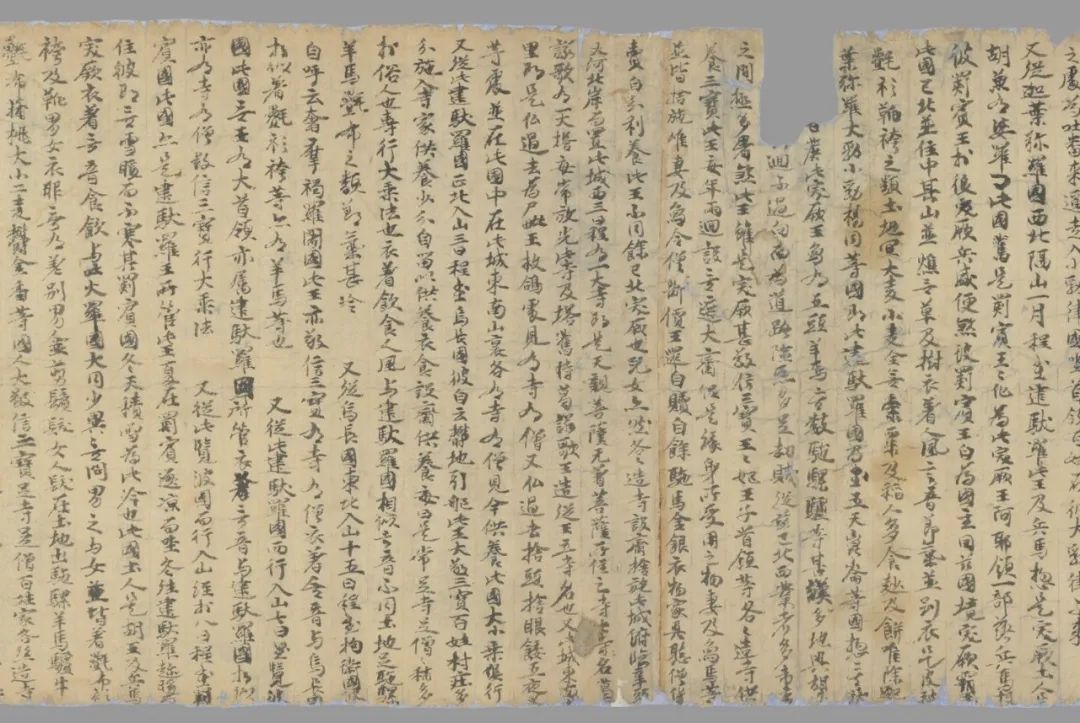 之處 吐蕃來逼走入小勃律國坐首領百姓在彼大勃律不來
又從迦葉彌羅國西北隔山一月程至建馱羅此王及兵馬惣是突厥土人是
胡兼有婆羅門此國舊是罽賓王王化為此突厥王阿耶領一部落兵馬投
彼罽賓王於後突厥兵盛便煞彼罽賓王自為國主因茲國境突厥覇
此國已北並住中其山並燋無草及樹衣著人風言音節氣並別衣是皮毬
㲲衫靴袴之類土地宜大麥小麥全無黍粟及稻人多食麨及餅唯除迦
葉彌羅大勃小勃楊同等國即此建馱羅國乃至五天崑崙等國惣無
此突厥王象有五頭羊馬無數駝騾驢等甚多漢地與胡
迴不過向南為道路險惡多足劫賊從茲已北西業者多市店
之間極多屠煞此王雖是突厥甚敬信三寶王王妃王子首領等各各造寺供
養三寶此王每年兩迴設無遮大齋但是緣身所受用之物妻及象馬等
並皆捨施唯妻及象令僧斷價王還自贖自餘駝馬金銀衣物家具聽僧貨
賣自分利養此王不同餘已北突厥也兒女亦然各各造寺設齋捨施此城俯臨辛頭
大河北岸而置此城西三日程有一大寺即是天親菩薩無著菩薩所住之寺此寺名葛
諾歌有一大塔每常放光此寺及塔舊時葛諾歌王造從王立寺名也又此城東南
里即是佛過去為尸毗王救鴿處見有寺有僧又佛過去捨頭捨眼餧五夜叉
等處並在此國中在此城東南山裏各有寺有僧見今供養此國大小乘俱行
又從此建馱羅國正北入山三日程至烏長國彼自云鬱地引那此王大敬三寶百姓村莊多
分施入寺家供養少分自留以供養衣食設齋供養每日是常足寺足僧僧稍多
於俗人也專行大乘法也衣著飲食人風與建馱羅國相似言音不同土地足駝騾
羊馬㲲布之類節氣甚冷 又從烏長國東北入山十五日程至拘衛國彼
自呼云奢摩褐羅闍國此王亦敬信三寶有寺有僧衣著言音與烏長國
相似著㲲衫袴等亦有羊馬等也 又從此建馱羅國西行入山七日至覽波
國此國無王有大首領亦屬建馱羅國所管衣著言音與建馱羅國相似
亦有寺有僧敬信三寶行大乘法 又從此覽波國而行入山經於八日程至罽
賓國此國亦是建馱羅王所管此王夏在罽賓逐涼而坐冬往建馱羅趁暖而
住彼即無雪暖而不寒其罽賓國冬天積雪為此冷也此國土人是胡王及兵馬
突厥衣著言音食飲與吐火羅國大同少異無問男之與女並皆著㲲布衫
袴及靴男女衣服無有差別男人並剪鬚髮女人髮在土地出駝騾羊馬驢牛
㲲布蒲桃大小二麥鬱金香等國人大敬信三寶足寺足僧百姓家各絲造寺